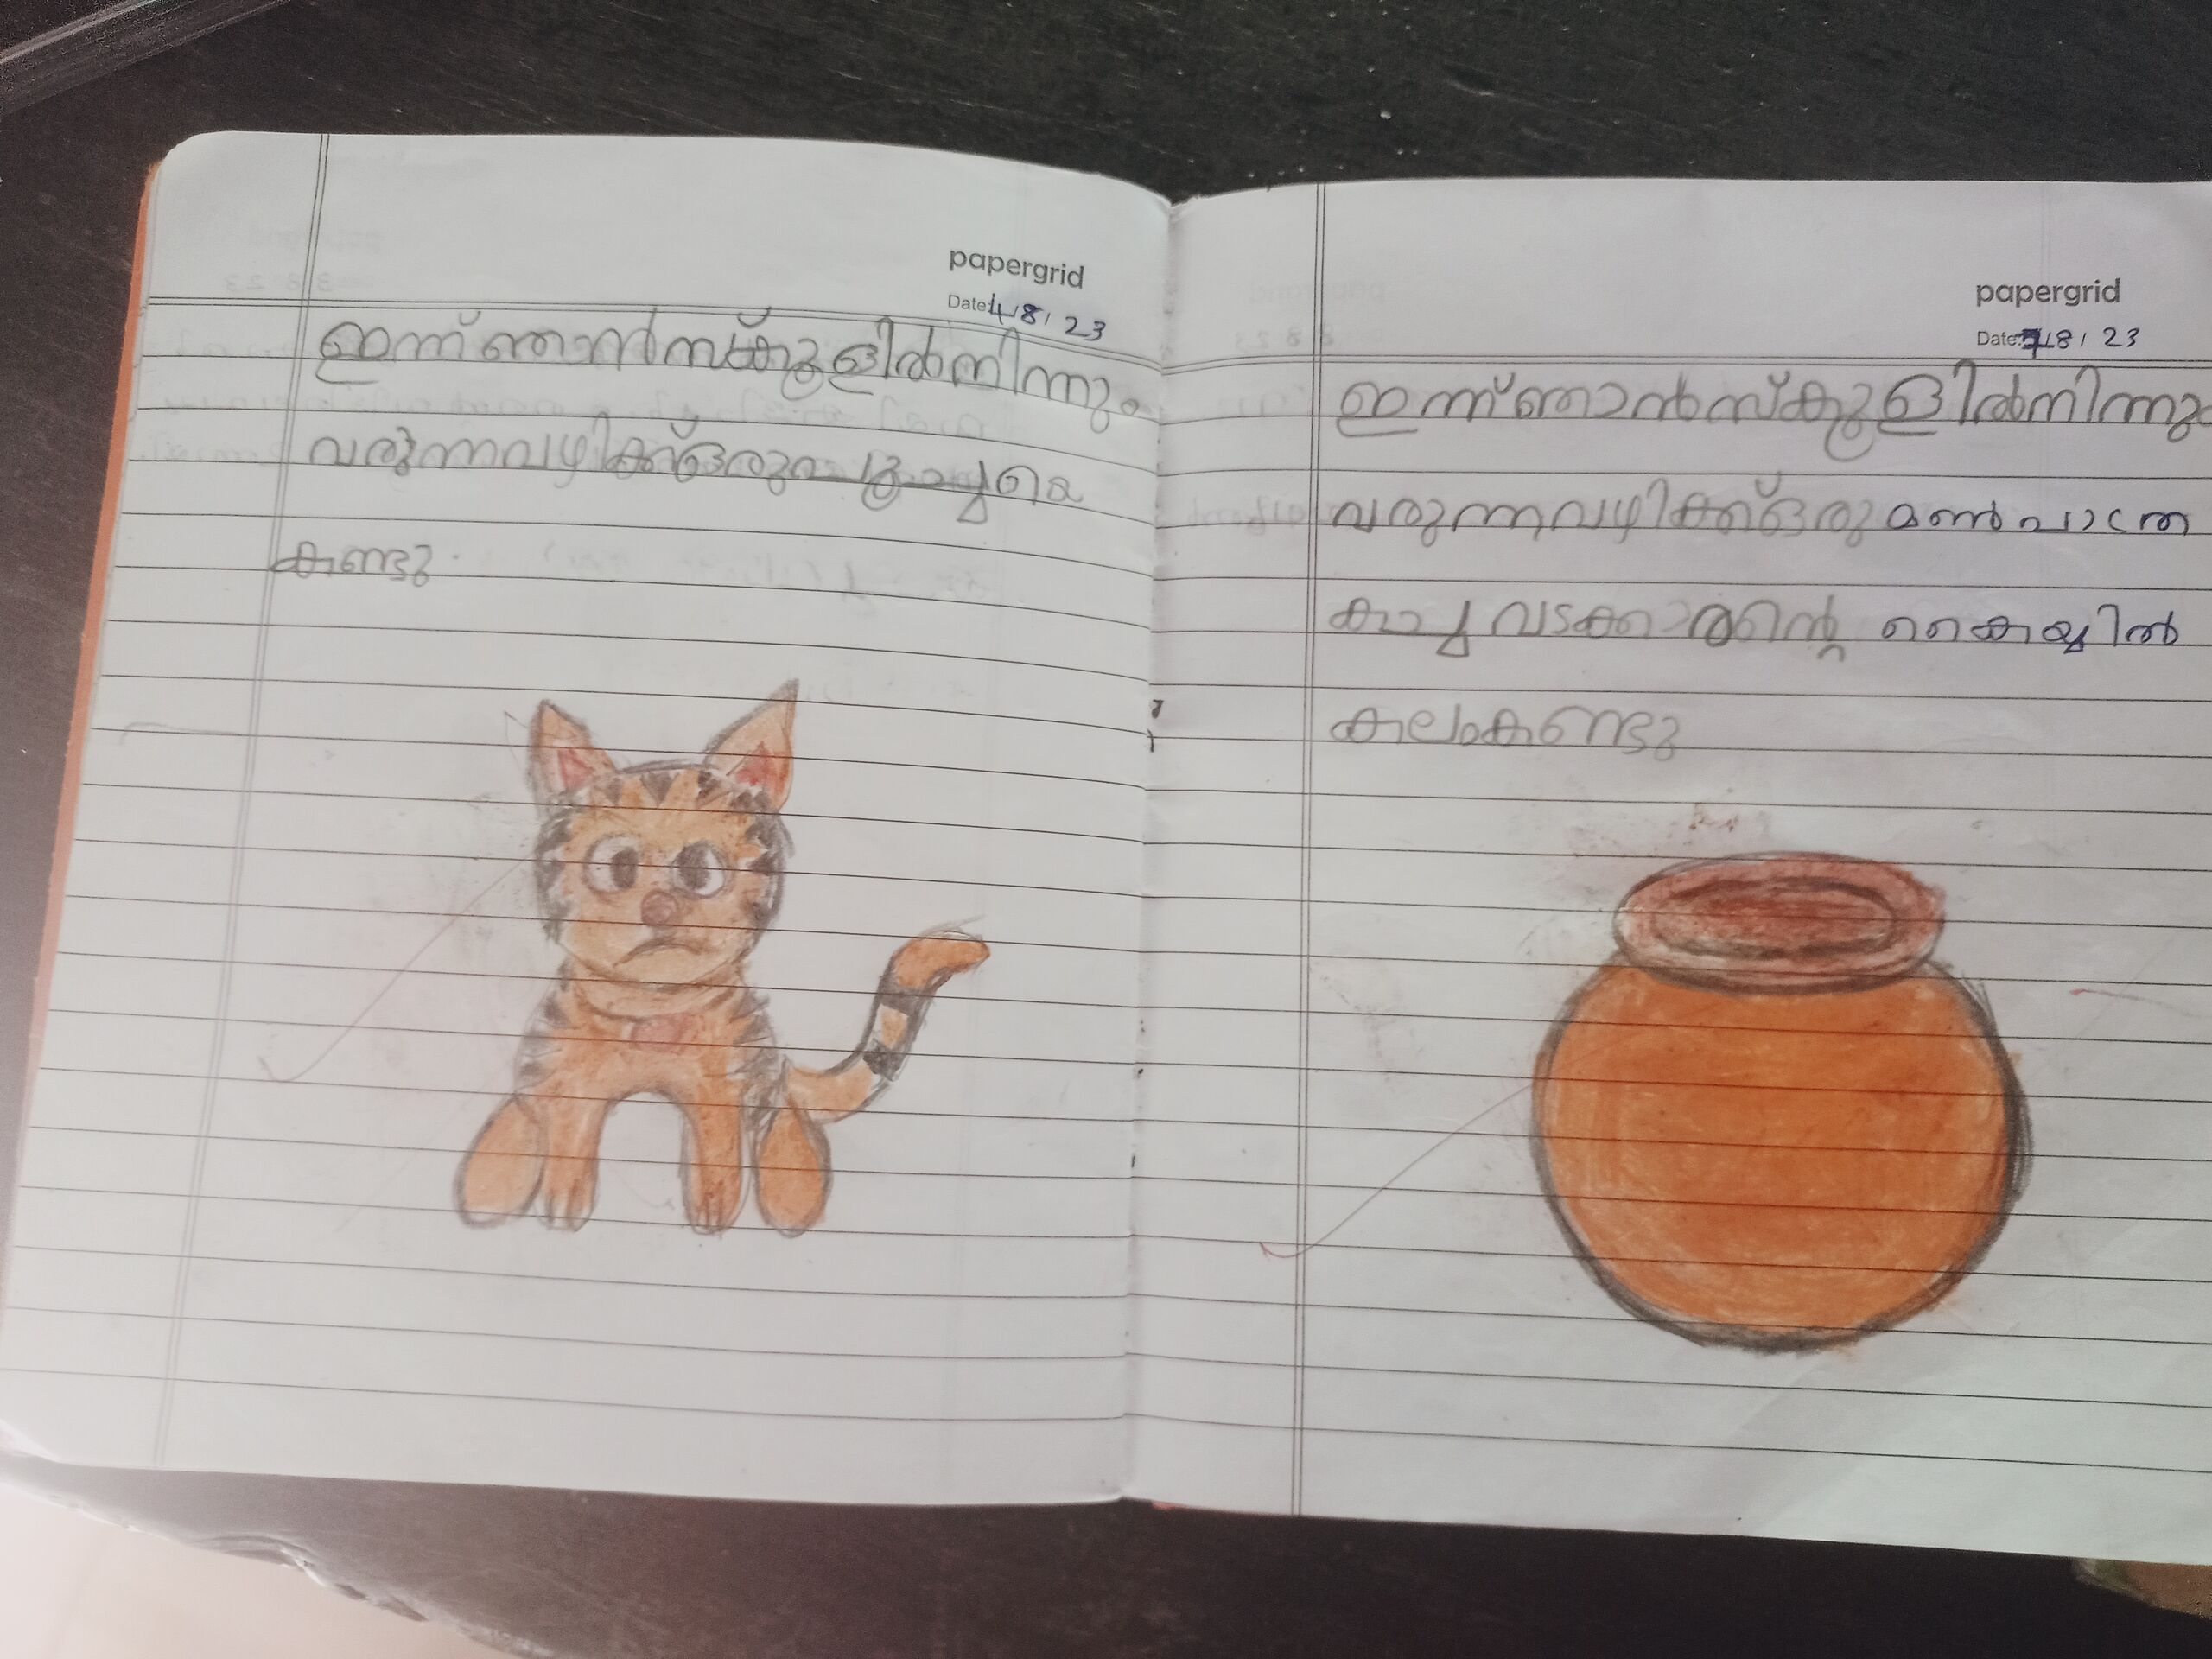 papergrid
Date 4/8/23
ഇന്ന് ഞാൻ സ്കൂളിൽ നിന്നും
വരുന്നവഴിക്ക് ഒരു പൂച്ചയെ
കണ്ടു.
papergrid
Date: 7/8/23
ഇന്ന് ഞാൻ സ്കൂളിൽ നിന്നും
വരുന്നവഴിക്ക് ഒരു മൺപാത്ര
കച്ചവടക്കാരന്റെ കൈയ്യിൽ
കലം കണ്ടു